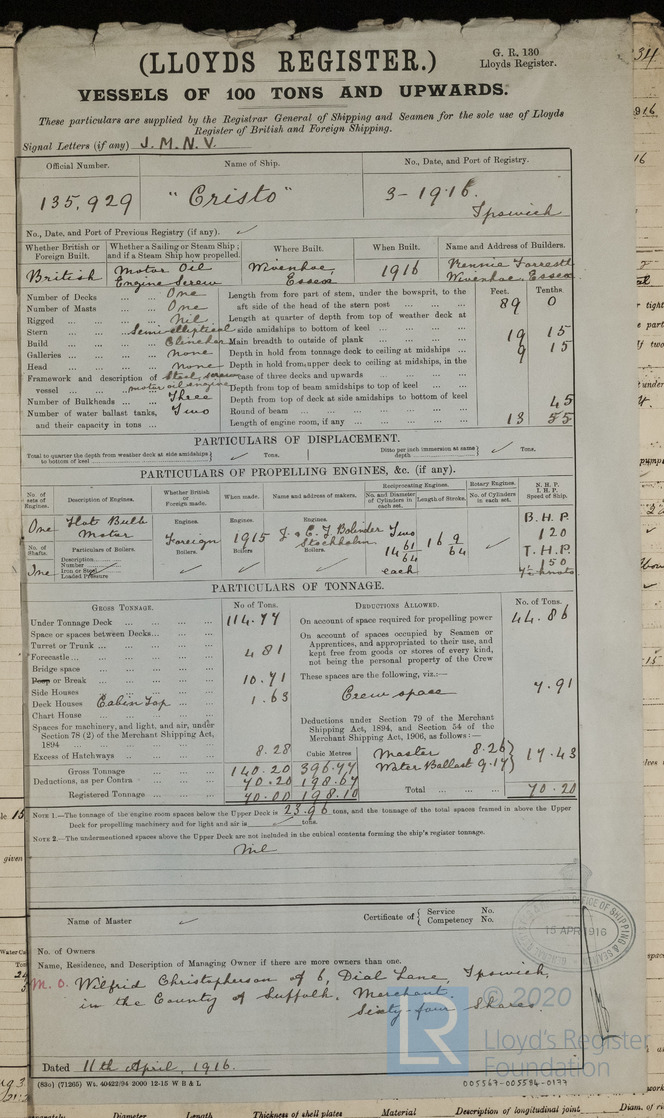 (LLOYDS REGISTER.)
G. R. 130
Lloyds Register.
VESSELS OF 100 TONS AND UPWARDS.
These particulars are supplied by the Registrar General of Shipping and Seamen for the sole use of Lloyds
Register of British and Foreign Shipping.
Signal Letters (if any) J. M. N. V.
Official Number. Name of Ship. No., Date, and Port of Registry.
135,929 "Cristo" 3-1916.
Ipswich
No., Date, and Port of Previous Registry (if any).
Whether British or Foreign Built. Whether a Sailing or Steam Ship; and if a Steam Ship how propelled. Where Built. When Built. Name and Address of Builders.
British Motor Oil Engine Screw Wivenhoe, Essex 1916 Rennie Forrestt Wivenhoe, Essex
Number of Decks One
Number of Masts One
Rigged Nil
Stern Semi-elliptical
Build Clincher
Galleries None
Head None
Framework and description of vessel Steel, screw motor oil engine
Number of Bulkheads Three
Number of water ballast tanks, and their capacity in tons Two
Feet. Tenths.
Length from fore part of stem, under the bowsprit, to the
aft side of the head of the stern post 89 0
Length at quarter of depth from top of weather deck at
side amidships to bottom of keel
Main breadth to outside of plank 19 15
Depth in hold from tonnage deck to ceiling at midships 9 15
Depth in hold from upper deck to ceiling at midships, in the
case of three decks and upwards
Depth from top of beam amidships to top of keel
Depth from top of deck at side amidships to bottom of keel
Round of beam 45
Length of engine room, if any 13 55
PARTICULARS OF DISPLACEMENT.
Total to quarter the depth from weather deck at side amidships to bottom of keel Tons.
Ditto per inch immersion at same depth Tons.
PARTICULARS OF PROPELLING ENGINES, &c. (if any).
No. of sets of Engines. Description of Engines. Whether British or Foreign made. When made. Name and address of makers. Reciprocating Engines. Rotary Engines. N. H. P.
No. and Diameter of Cylinders in each set. Length of Stroke. No. of Cylinders in each set. I. H. P. Speed of Ship.
One Hot Bulb Motor Engines. Foreign Engines. 1915 Engines. J. & C. G. Bolinder Stockholm Two 14 61/64 each 16 9/64 B. H. P. 120
No. of Shafts. Particulars of Boilers. Boilers. Boilers Boilers. I. H. P. 150
One Description
Number
Iron or Steel
Loaded Pressure
7½ knots
PARTICULARS OF TONNAGE.
GROSS TONNAGE. No of Tons.
Under Tonnage Deck 114.77
Space or spaces between Decks
Turret or Trunk
Forecastle 4 81
Bridge space
Poop or Break 10.71
Side Houses
Deck Houses Cabin Top 1.63
Chart House
Spaces for machinery, and light, and air, under
Section 78 (2) of the Merchant Shipping Act,
1894
Excess of Hatchways 8.28
Cubic Metres
Gross Tonnage 140.20 396.77
Deductions, as per Contra 70.20 198.67
Registered Tonnage 70.00 198.10
DEDUCTIONS ALLOWED. No. of Tons.
On account of space required for propelling power 44.86
On account of spaces occupied by Seamen or
Apprentices, and appropriated to their use, and
kept free from goods or stores of every kind,
not being the personal property of the Crew
These spaces are the following, viz.:—
Crew space 7.91
Deductions under Section 79 of the Merchant
Shipping Act, 1894, and Section 54 of the
Merchant Shipping Act, 1906, as follows:—
Master 8.26
Water Ballast 9.17 17.43
Total 70.20
NOTE 1.—The tonnage of the engine room spaces below the Upper Deck is 23.96 tons, and the tonnage of the total spaces framed in above the Upper
Deck for propelling machinery and for light and air is tons.
NOTE 2.—The undermentioned spaces above the Upper Deck are not included in the cubical contents forming the ship's register tonnage.
Nil
Name of Master
Certificate of Service No.
Competency No.
15 APR 1916
No. of Owners
Name, Residence, and Description of Managing Owner if there are more owners than one.
M. O. Wilfrid Christopherson of 6, Dial Lane, Ipswich,
in the County of Suffolk. Merchant.
Sixty-four Shares.
© 2020
Lloyd's Register
Foundation
Dated 11th April, 1916.
(83o) (71265) Wt. 40422/94 2000 12-15 W B & L
005567-005594-0177
Diameter Length Thickness of shell plates Material Description of longitudinal joint